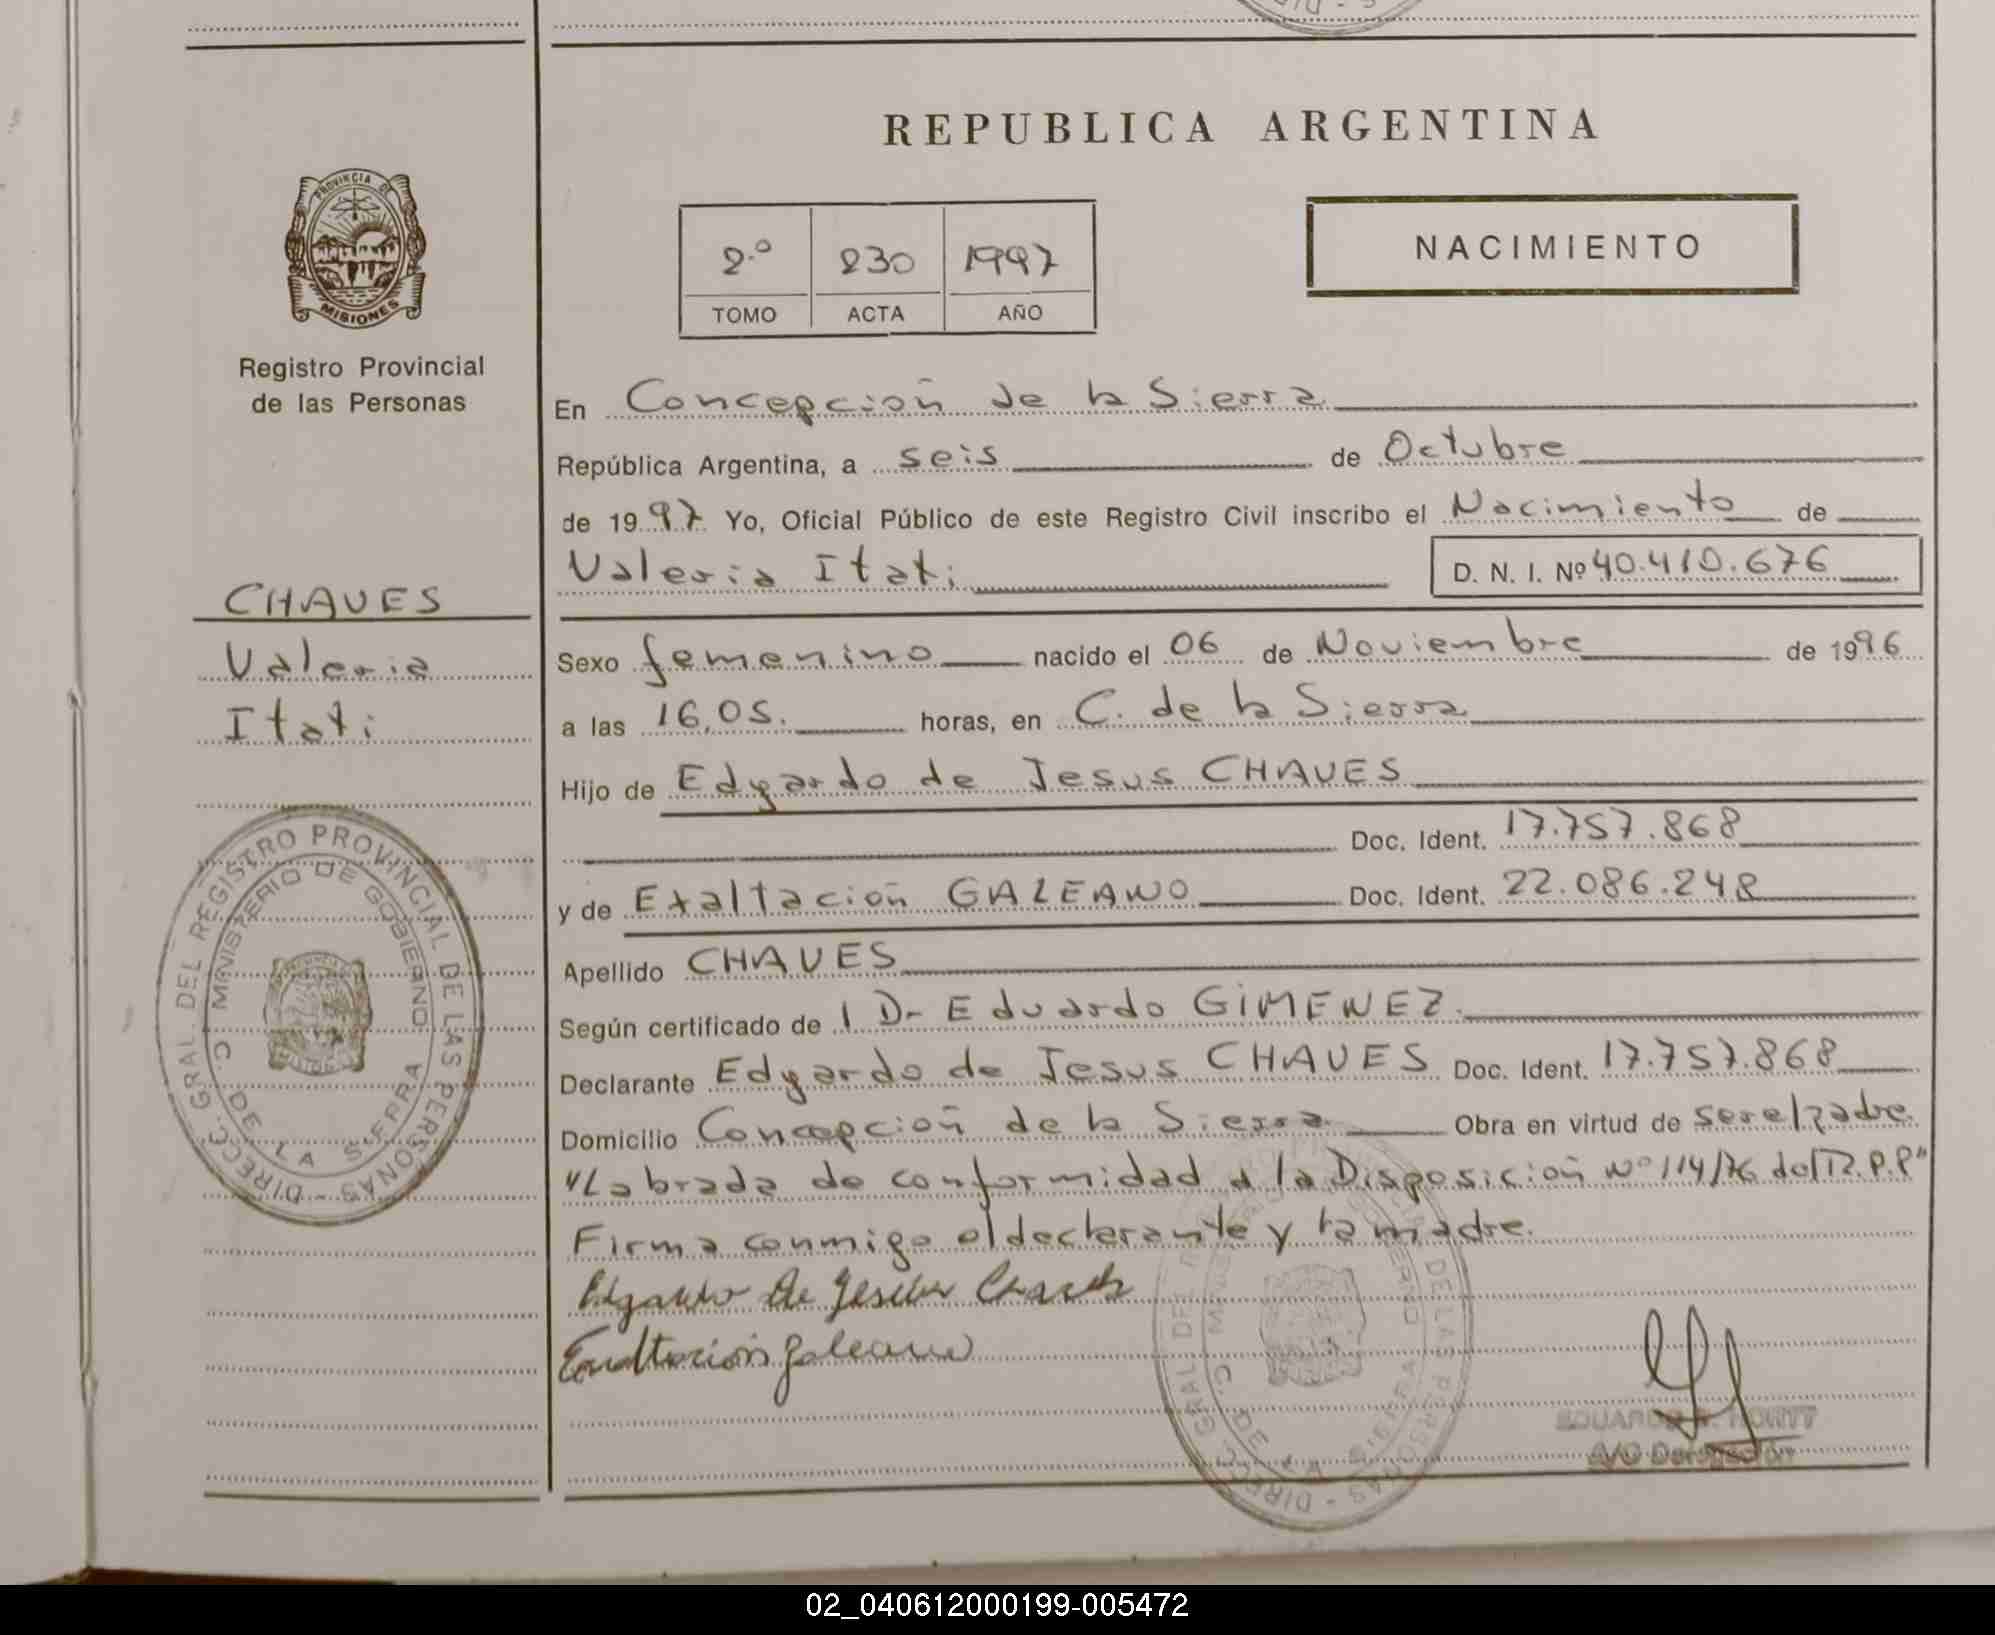 REPUBLICA ARGENTINA
PROVINCIA DE
MISIONES
Registro Provincial
de las Personas
2.º 230 1997
TOMO ACTA AÑO
NACIMIENTO
En Concepción de la Sierra
República Argentina, a seis de Octubre
de 1997 Yo, Oficial Público de este Registro Civil inscribo el Nacimiento de
Valeria Itati D. N. I. Nº 40.410.676
CHAVES
Valeria
Itati
Sexo femenino nacido el 06 de Noviembre de 1996
a las 16,05. horas, en C. de la Sierra
Hijo de Edgardo de Jesus CHAVES
Doc. Ident. 17.757.868
y de Exaltación GALEANO Doc. Ident. 22.086.248
Apellido CHAVES
Según certificado de 1 Dr Eduardo GIMENEZ.
Declarante Edgardo de Jesus CHAVES Doc. Ident. 17.757.868
Domicilio Concepción de la Sierra Obra en virtud de ser el padre.
"Labrada de conformidad a la Disposición Nº 114/76 del R.P.P"
Firma conmigo el declarante y la madre.
Edgardo De Jesus Chaves
Exaltación Galeano
DIRECC. GRAL. DEL REGISTRO PROVINCIAL DE LAS PERSONAS -
MINISTERIO DE GOBIERNO
C. DE LA SIERRA
DIRECC. GRAL. DEL PERSONAS -
C. DE LA SIERRA
EDUARDO
A/C Delegación
02_040612000199-005472